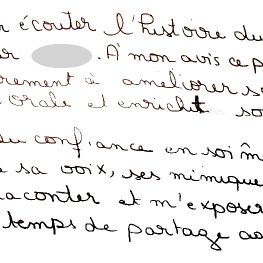 r écouter l'histoire du
er . A mon avis ce p
rement à améliorer s
orale et enrichit so
eu confiance en soi m
e sa voix, ses mimique
raconter et m'exposer
temps de partage a